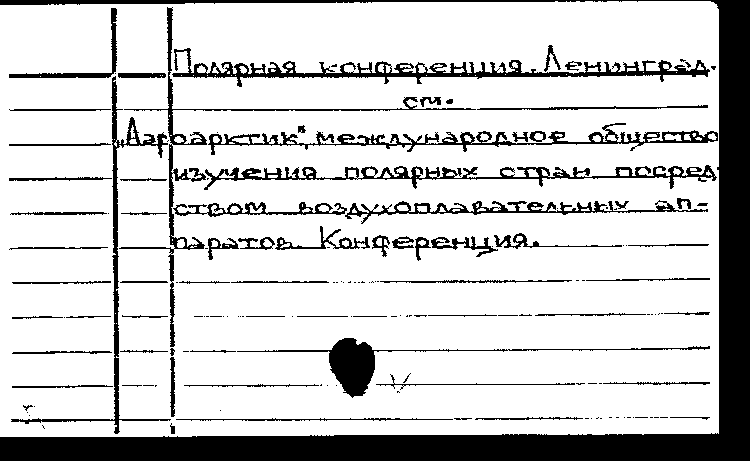 Полярная конференция. Ленинград.
см.
„Аэроарктик", международное общество
изучения полярных стран посред
ством воздухоплавательных ап-
паратов. Конференция.